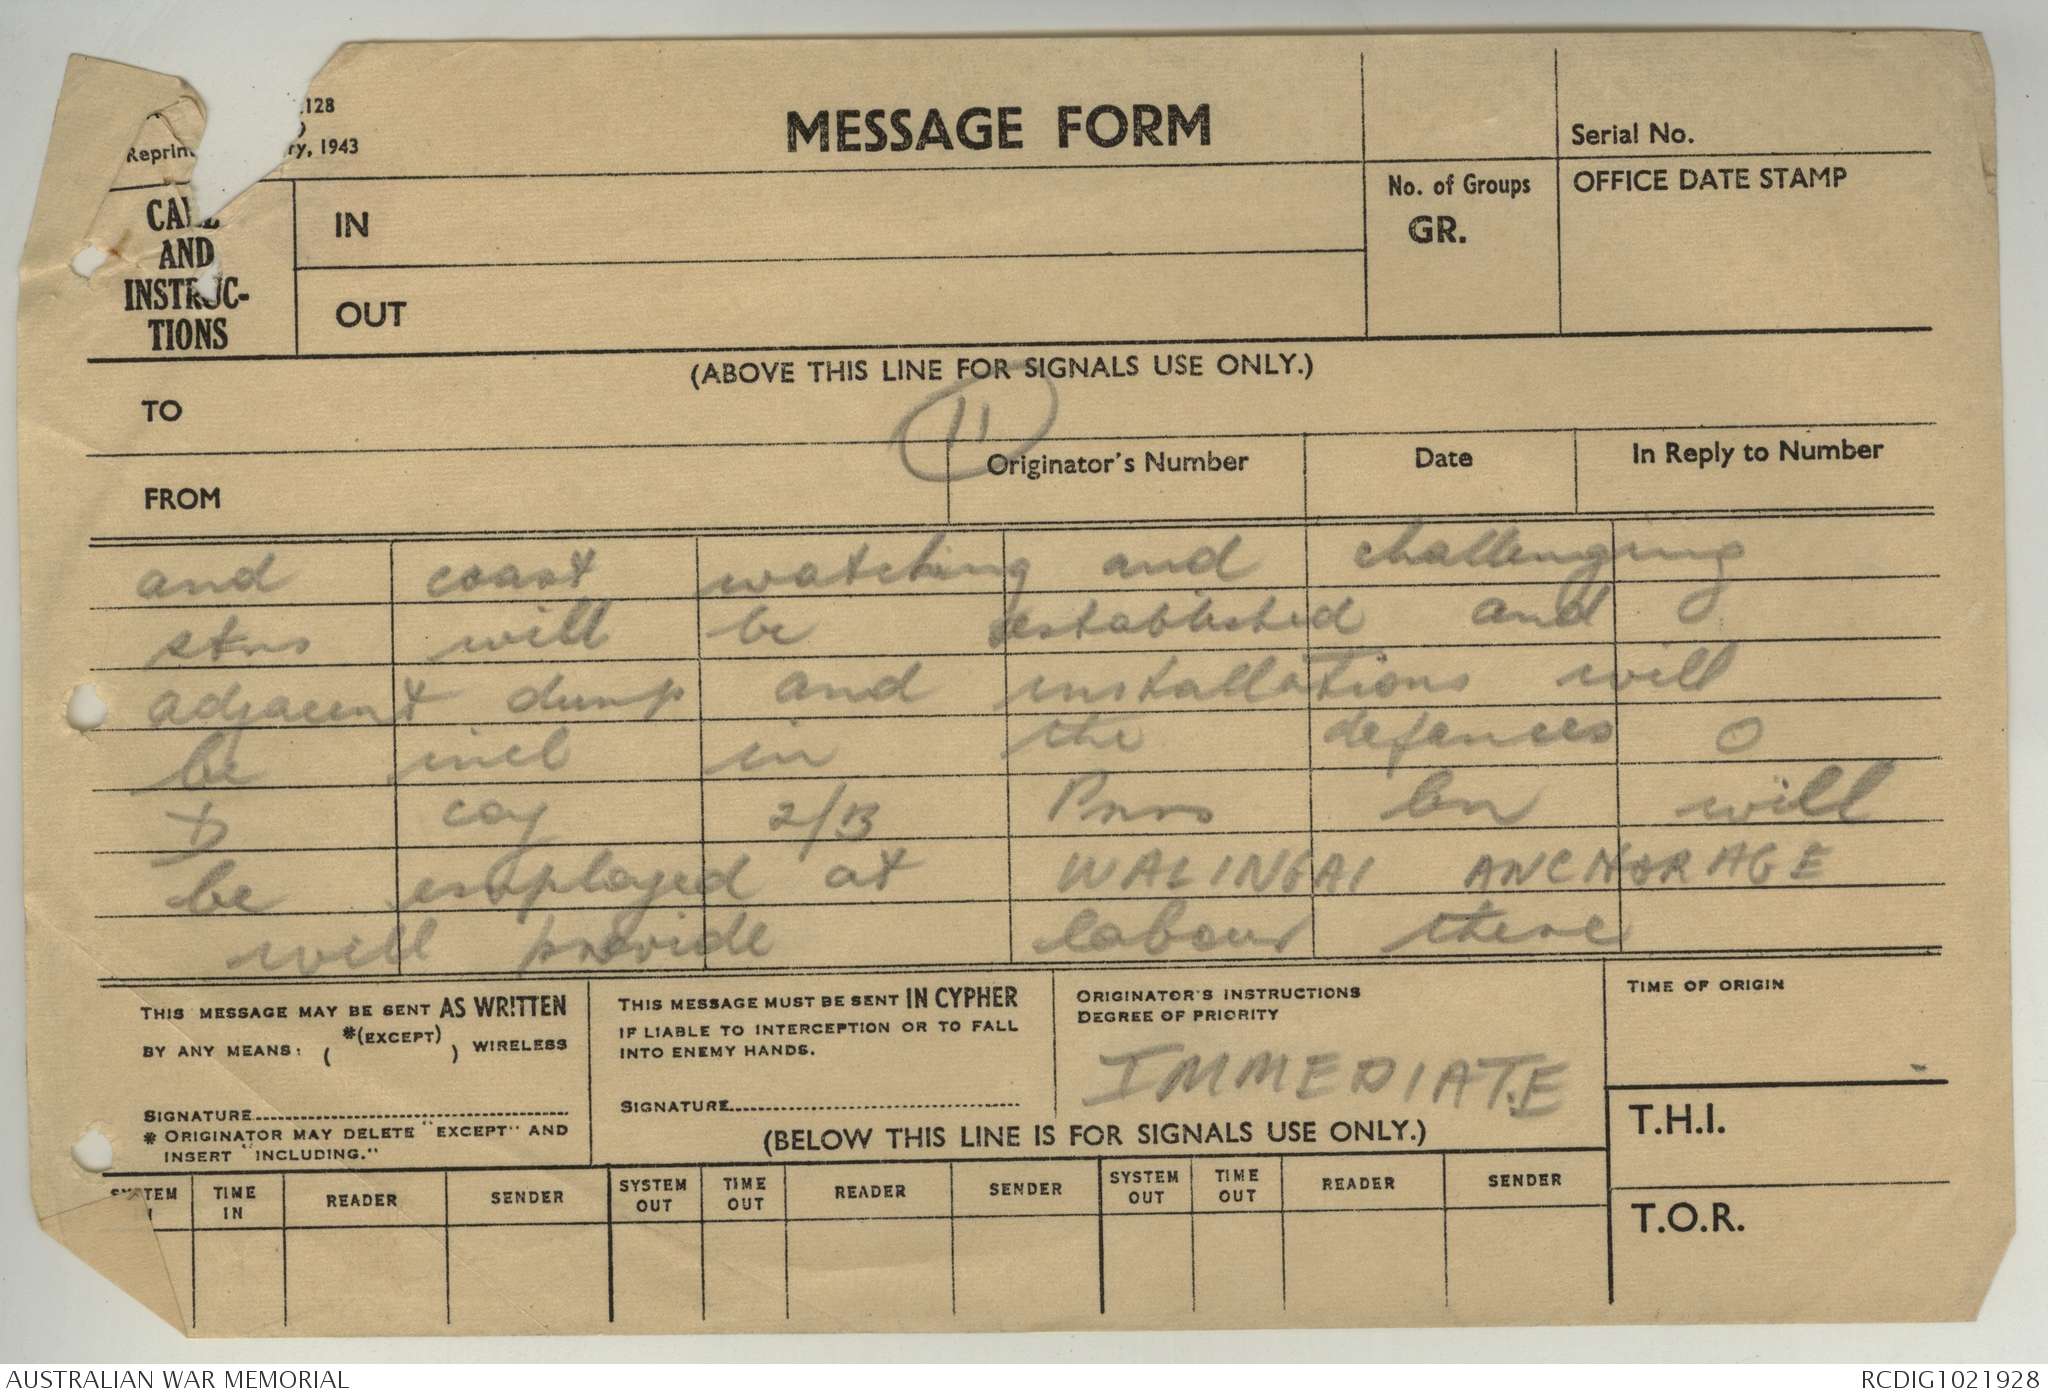 .128
MESSAGE FORM
Serial No.
Reprin ry, 1943
No. of Groups
OFFICE DATE STAMP
CALL
AND
INSTRUC-
TIONS
IN
GR.
OUT
(ABOVE THIS LINE FOR SIGNALS USE ONLY.)
TO
11
Originator's Number
Date
In Reply to Number
FROM
and coast watching and challenging
stns will be established and O
adjacent dump and installations will
be incl in the defences O
D coy 2/13 Pnrs bn will
be employed at WALINGAI ANCHORAGE
will provide labour there
THIS MESSAGE MAY BE SENT AS WRITTEN
BY ANY MEANS: ( *(EXCEPT) ) WIRELESS
SIGNATURE
* ORIGINATOR MAY DELETE "EXCEPT" AND
INSERT "INCLUDING."
THIS MESSAGE MUST BE SENT IN CYPHER
IF LIABLE TO INTERCEPTION OR TO FALL
INTO ENEMY HANDS.
SIGNATURE
ORIGINATOR'S INSTRUCTIONS
DEGREE OF PRIORITY
IMMEDIATE
TIME OF ORIGIN
(BELOW THIS LINE IS FOR SIGNALS USE ONLY.)
T.H.I.
SYSTEM IN TIME IN READER SENDER SYSTEM OUT TIME OUT READER SENDER SYSTEM OUT TIME OUT READER SENDER
T.O.R.
AUSTRALIAN WAR MEMORIAL
RCDIG1021928